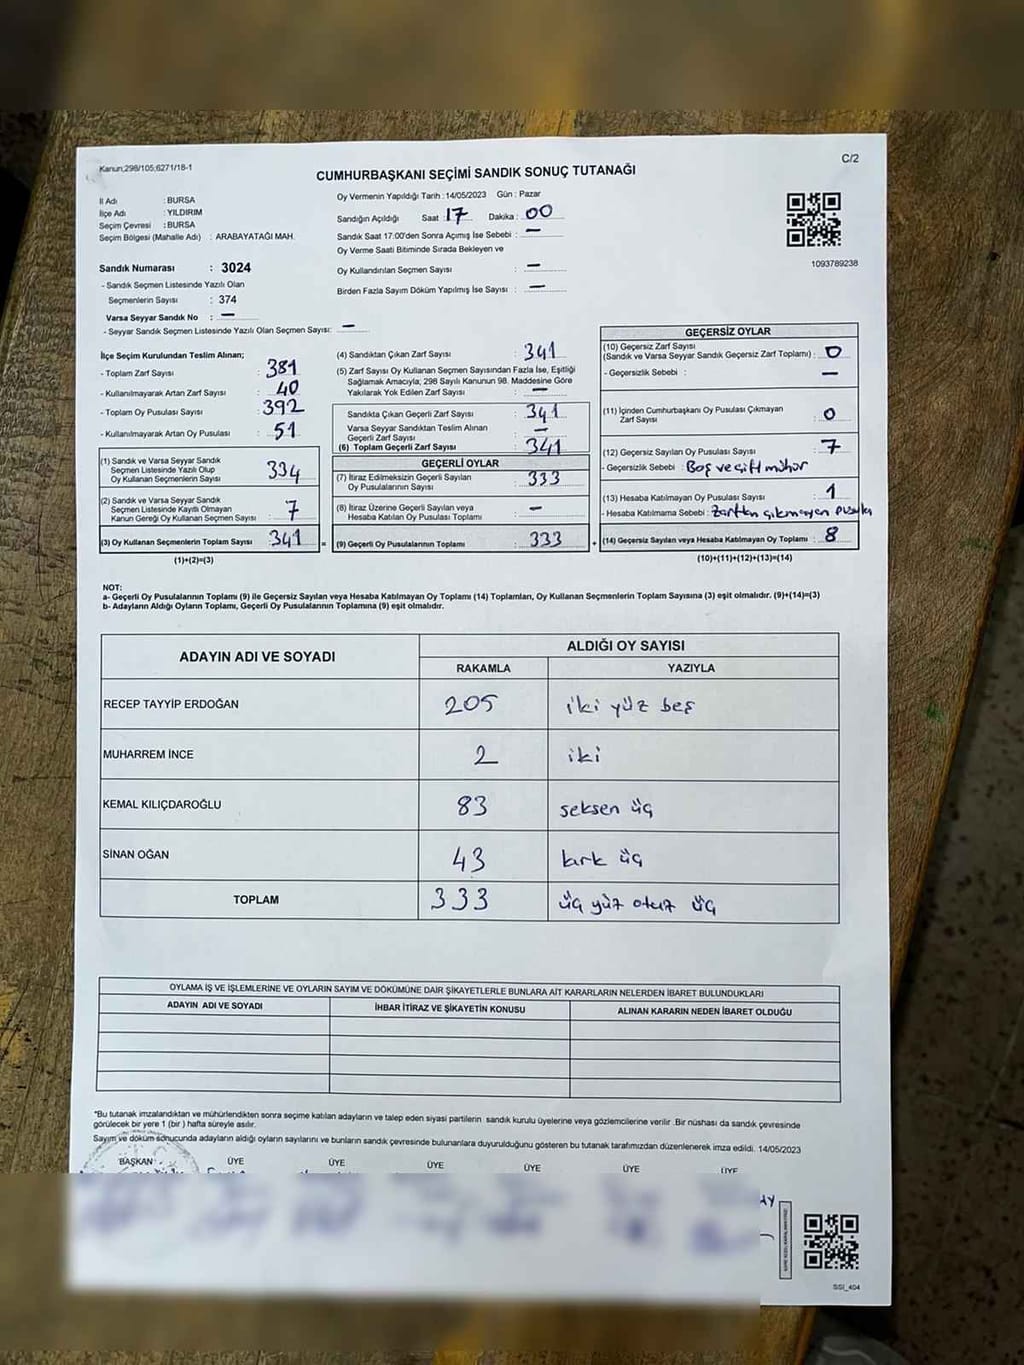 Kanun;298/105;6271/18-1
C/2
CUMHURBAŞKANI SEÇİMİ SANDIK SONUÇ TUTANAĞI
İl Adı : BURSA
İlçe Adı : YILDIRIM
Seçim Çevresi : BURSA
Seçim Bölgesi (Mahalle Adı) : ARABAYATAĞI MAH.
Oy Vermenin Yapıldığı Tarih : 14/05/2023 Gün : Pazar
Sandığın Açıldığı Saat : 17 Dakika : 00
Sandık Saat 17:00'den Sonra Açımış İse Sebebi : —
Oy Verme Saati Bitiminde Sırada Bekleyen ve
Oy Kullandırılan Seçmen Sayısı : —
Birden Fazla Sayım Döküm Yapılmış İse Sayısı : —
1093789238
Sandık Numarası : 3024
- Sandık Seçmen Listesinde Yazılı Olan
Seçmenlerin Sayısı : 374
Varsa Seyyar Sandık No : —
- Seyyar Sandık Seçmen Listesinde Yazılı Olan Seçmen Sayısı: —
İlçe Seçim Kurulundan Teslim Alınan;
- Toplam Zarf Sayısı : 381
- Kullanılmayarak Artan Zarf Sayısı : 40
- Toplam Oy Pusulası Sayısı : 392
- Kullanılmayarak Artan Oy Pusulası : 51
(1) Sandık ve Varsa Seyyar Sandık
Seçmen Listesinde Yazılı Olup
Oy Kullanan Seçmenlerin Sayısı : 334
(2) Sandık ve Varsa Seyyar Sandık
Seçmen Listesinde Kayıtlı Olmayan
Kanun Gereği Oy Kullanan Seçmen Sayısı : 7
(3) Oy Kullanan Seçmenlerin Toplam Sayısı : 341
(1)+(2)=(3)
(4) Sandıktan Çıkan Zarf Sayısı : 341
(5) Zarf Sayısı Oy Kullanan Seçmen Sayısından Fazla İse, Eşitliği
Sağlamak Amacıyla; 298 Sayılı Kanunun 98. Maddesine Göre
Yakılarak Yok Edilen Zarf Sayısı : —
Sandıkta Çıkan Geçerli Zarf Sayısı : 341
Varsa Seyyar Sandıktan Teslim Alınan
Geçerli Zarf Sayısı : —
(6) Toplam Geçerli Zarf Sayısı : 341
GEÇERLİ OYLAR
(7) İtiraz Edilmeksizin Geçerli Sayılan
Oy Pusulalarının Sayısı : 333
(8) İtiraz Üzerine Geçerli Sayılan veya
Hesaba Katılan Oy Pusulası Toplamı : —
= (9) Geçerli Oy Pusulalarının Toplamı : 333 +
GEÇERSİZ OYLAR
(10) Geçersiz Zarf Sayısı
(Sandık ve Varsa Seyyar Sandık Geçersiz Zarf Toplamı) : 0
- Geçersizlik Sebebi : —
(11) İçinden Cumhurbaşkanı Oy Pusulası Çıkmayan
Zarf Sayısı : 0
(12) Geçersiz Sayılan Oy Pusulası Sayısı : 7
- Geçersizlik Sebebi : Boş ve çift mühür
(13) Hesaba Katılmayan Oy Pusulası Sayısı : 1
- Hesaba Katılmama Sebebi : Zarftan çıkmayan pusula
(14) Geçersiz Sayılan veya Hesaba Katılmayan Oy Toplamı : 8
(10)+(11)+(12)+(13)=(14)
NOT:
a- Geçerli Oy Pusulalarının Toplamı (9) ile Geçersiz Sayılan veya Hesaba Katılmayan Oy Toplamı (14) Toplamları, Oy Kullanan Seçmenlerin Toplam Sayısına (3) eşit olmalıdır. (9)+(14)=(3)
b- Adayların Aldığı Oyların Toplamı, Geçerli Oy Pusulalarının Toplamına (9) eşit olmalıdır.
ADAYIN ADI VE SOYADI ALDIĞI OY SAYISI
RAKAMLA YAZIYLA
RECEP TAYYİP ERDOĞAN 205 iki yüz beş
MUHARREM İNCE 2 iki
KEMAL KILIÇDAROĞLU 83 seksen üç
SİNAN OĞAN 43 kırk üç
TOPLAM 333 üç yüz otuz üç
OYLAMA İŞ VE İŞLEMLERİNE VE OYLARIN SAYIM VE DÖKÜMÜNE DAİR ŞİKAYETLERLE BUNLARA AİT KARARLARIN NELERDEN İBARET BULUNDUKLARI
ADAYIN ADI VE SOYADI İHBAR İTİRAZ VE ŞİKAYETİN KONUSU ALINAN KARARIN NEDEN İBARET OLDUĞU
"Bu tutanak imzalandıktan ve mühürlendikten sonra seçime katılan adayların ve talep eden siyasi partilerin sandık kurulu üyelerine veya gözlemcilerine verilir. Bir nüshası da sandık çevresinde
görülecek bir yere 1 (bir ) hafta süreyle asılır.
Sayım ve döküm sonucunda adayların aldığı oyların sayılarını ve bunların sandık çevresinde bulunanlara duyurulduğunu gösteren bu tutanak tarafımızdan düzenlenerek imza edildi. 14/05/2023
BAŞKAN ÜYE ÜYE ÜYE ÜYE ÜYE ÜYE
SSI_404